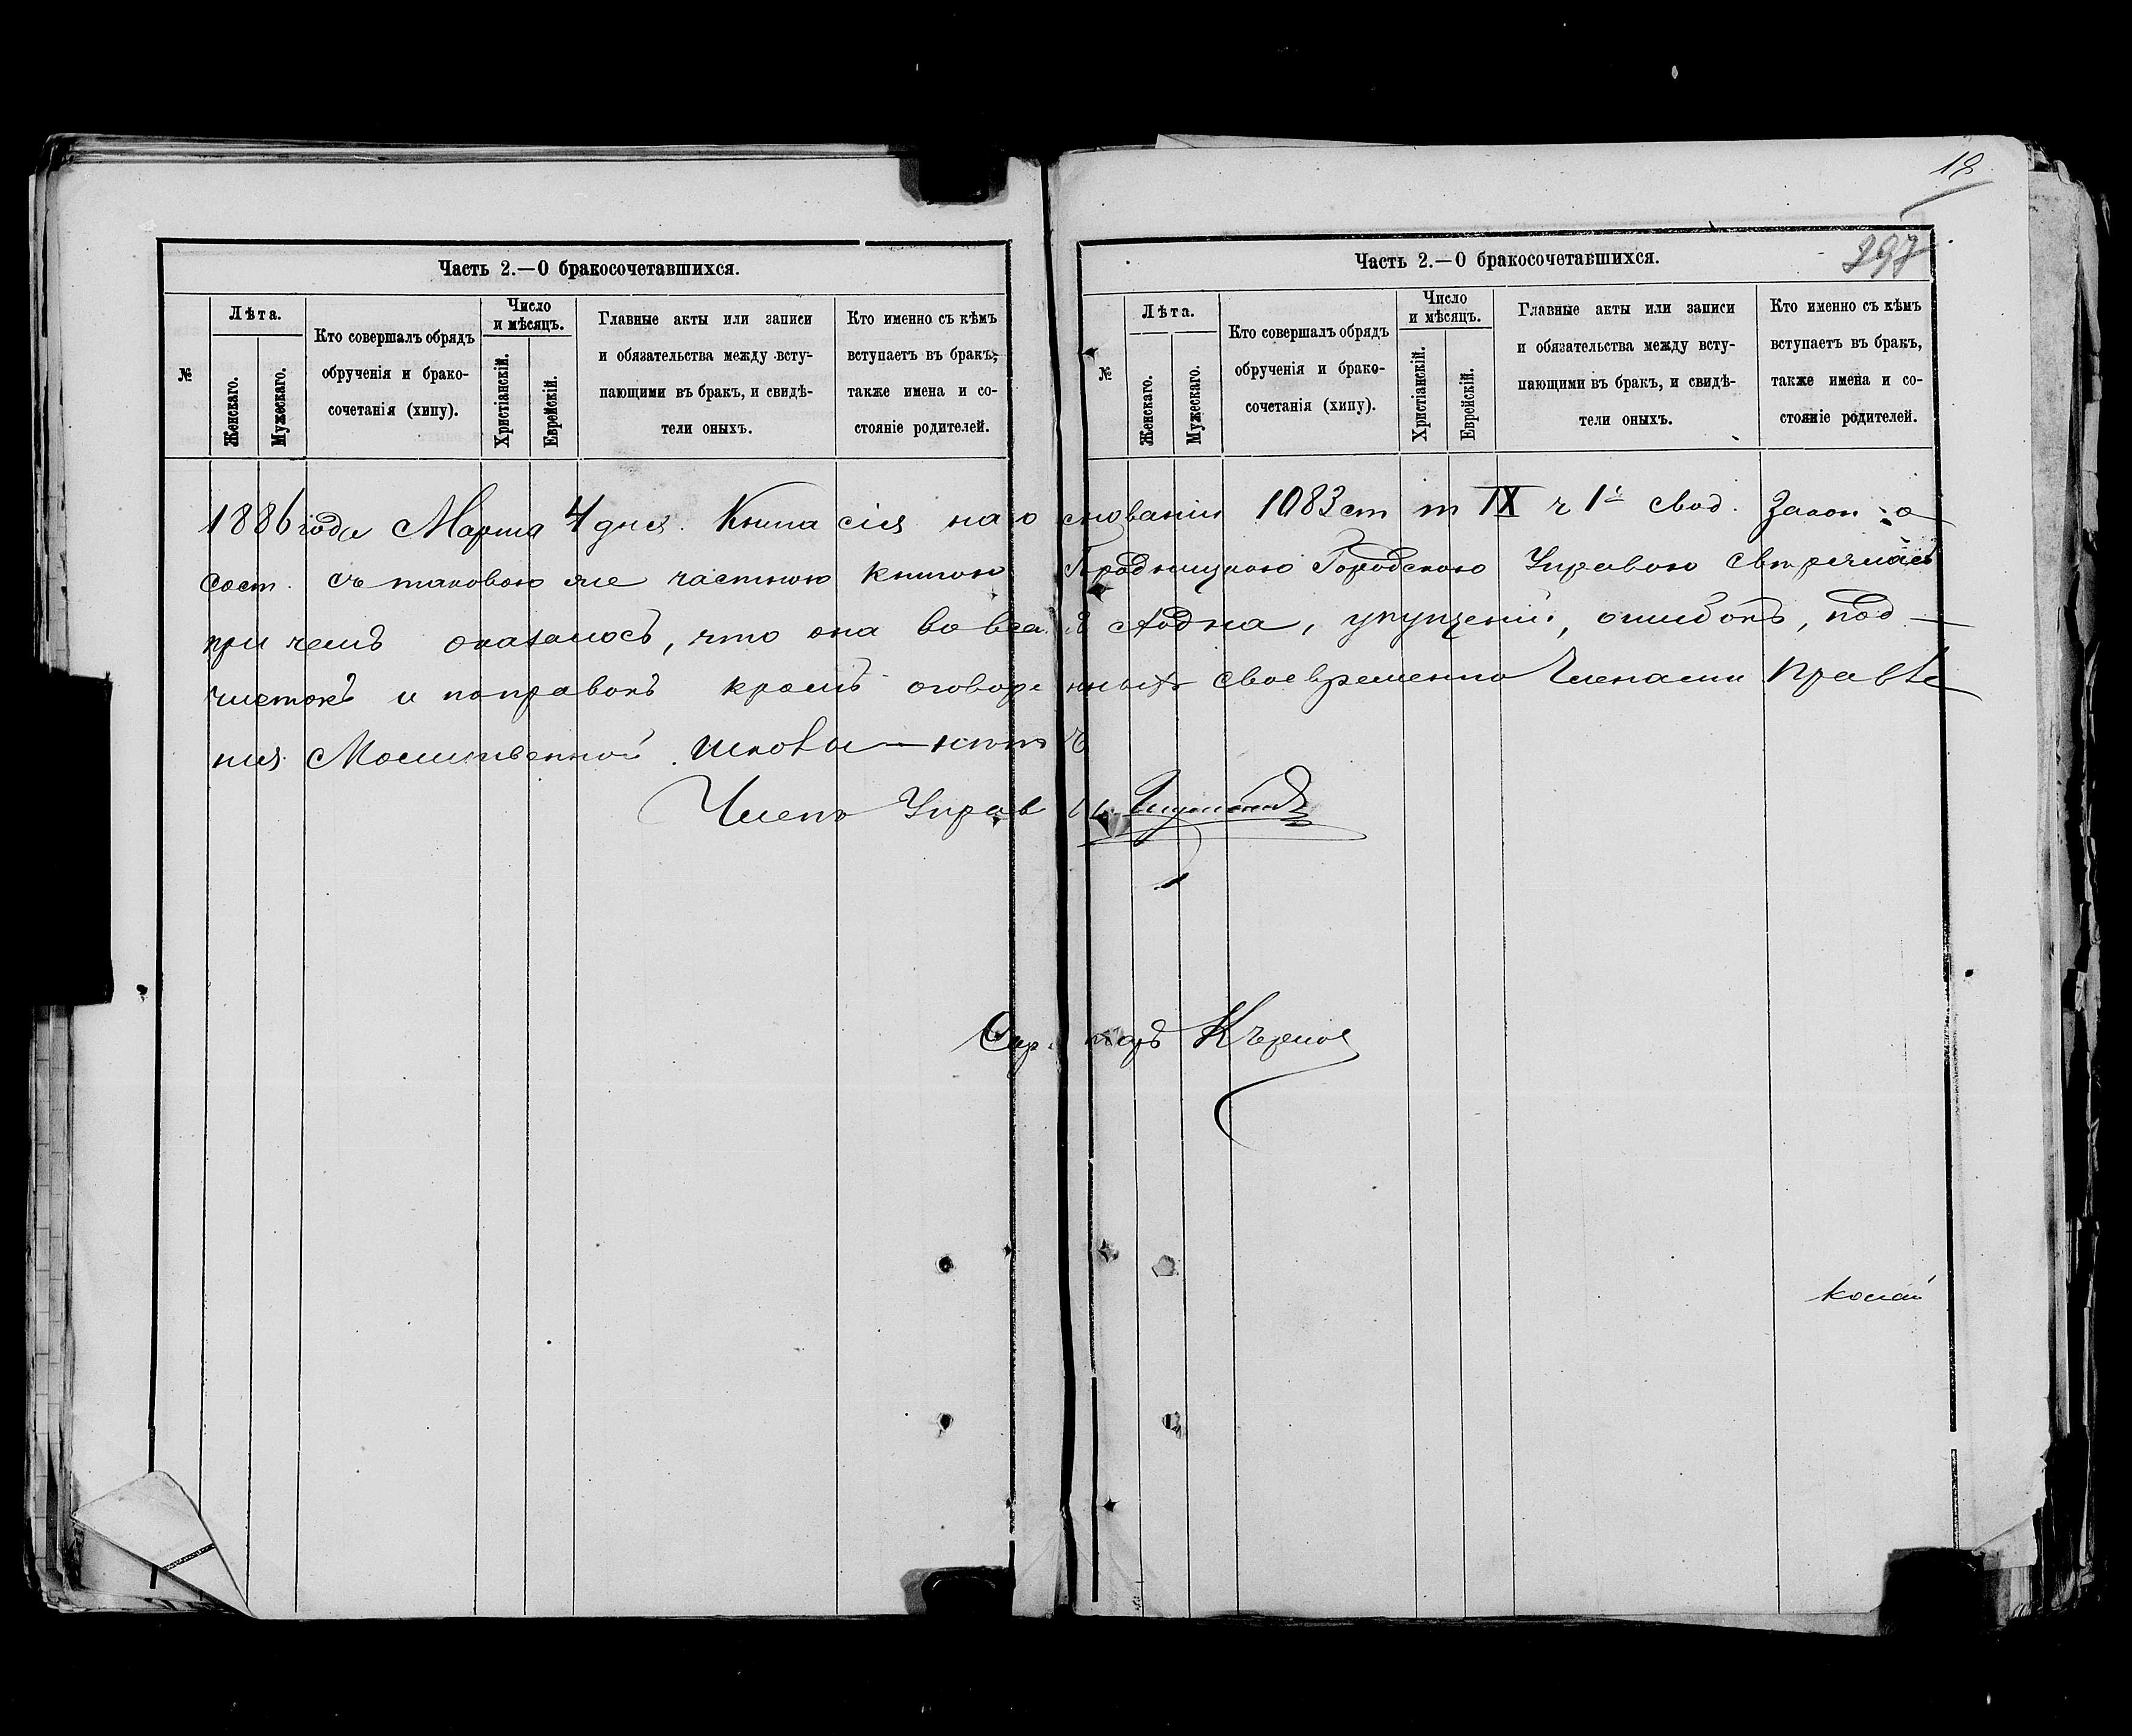 18
297
Часть 2.—О бракосочетавшихся.
№
Лѣта.
Женскаго.
Мужескаго.
Кто совершалъ обрядъ
обрученія и брако-
сочетанія (хипу).
Число
и мѣсяцъ.
Христіанскій.
Еврейскій.
Главные акты или записи
и обязательства между всту-
пающими въ бракъ, и свидѣ-
тели оныхъ.
Кто именно съ кѣмъ
вступаетъ въ бракъ,
также имена и со-
стояніе родителей.
Часть 2.—О бракосочетавшихся.
№
Лѣта.
Женскаго.
Мужескаго.
Кто совершалъ обрядъ
обрученія и брако-
сочетанія (хипу).
Число
и мѣсяцъ.
Христіанскій.
Еврейскій.
Главные акты или записи
и обязательства между всту-
пающими въ бракъ, и свидѣ-
тели оныхъ.
Кто именно съ кѣмъ
вступаетъ въ бракъ,
также имена и со-
стояніе родителей.
1886 года Марта 4 дня. Книга сія на основаніи 1083 ст т IX ч 1й свод. Закон о
сост. съ таковою же частною книгою Городницкою Городскою Управою свѣрялась
при чемъ оказалось, что она во всемъ сходна, упущеній, ошибокъ, под—
чистокъ и поправокъ кромѣ оговоренныхъ своевременно Членами Правле
нія Молитвенной школы — нѣтъ
Членъ Управы
Секретарь